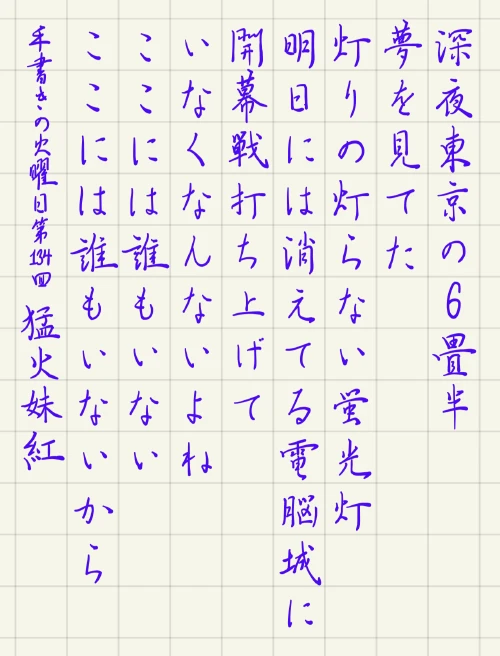 深夜東京の6畳半
夢を見てた
灯りの灯らない蛍光灯
明日には消えてる電脳城に
開幕戦打ち上げて
いなくなんないよね
ここには誰もいない
ここには誰もいないから
手書きの火曜日第134回 猛火妹紅